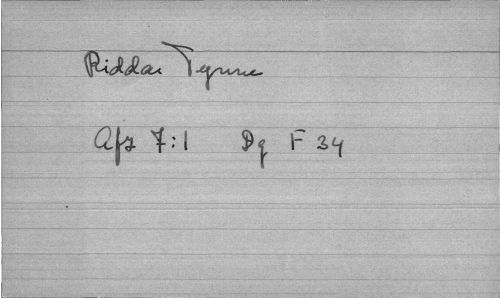 Riddar Tynne
Afz 7:1 Dq F 34